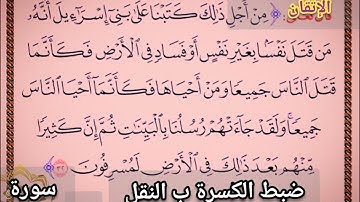 الإتقان
مِنْ أَجْلِ ذَٰلِكَ كَتَبْنَا عَلَىٰ بَنِىٓ إِسْرَآءِيلَ أَنَّهُۥ
مَن قَتَلَ نَفْسًۢا بِغَيْرِ نَفْسٍ أَوْ فَسَادٍ فِى ٱلْأَرْضِ فَكَأَنَّمَا
قَتَلَ ٱلنَّاسَ جَمِيعًا وَمَنْ أَحْيَاهَا فَكَأَنَّمَآ أَحْيَا ٱلنَّاسَ
جَمِيعًا ۚ وَلَقَدْ جَآءَتْهُمْ رُسُلُنَا بِٱلْبَيِّنَٰتِ ثُمَّ إِنَّ كَثِيرًا
مِّنْهُم بَعْدَ ذَٰلِكَ فِى ٱلْأَرْضِ لَمُسْرِفُونَ ٣٢
ضبط الكسرة ب النقل
سورة